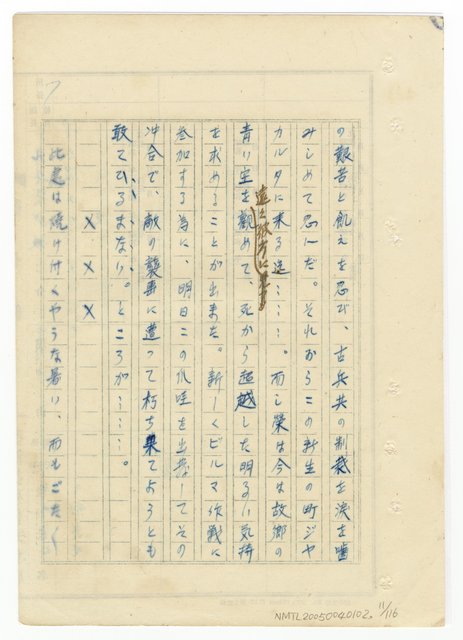 の艱苦と飢えを忍び、古兵共の制裁を涙を歯
みしめて忍んだ。それからこの新生の町ジヤ
カルタに来る迄……。而し榮は今は故郷の
遠く彼方に
青い空を観めて、死から超越した明るい気持
を求めることが出来た。新しくビルマ作戦に
参加する為に、明日この爪哇を出発してその
沖合で、敵の襲撃に遭って朽ち果てようとも
敢てひるまない。ところが……。
X X X
此処は焼け付くやうな暑い、而もごたく
NMTL20050040102, 11/116